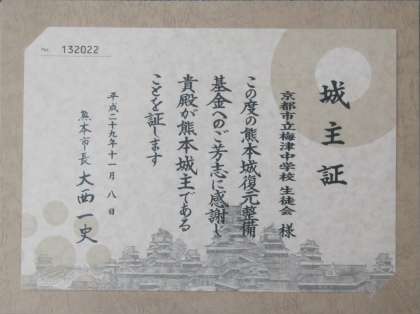 No. 132022
城主証
京都市立梅津中学校 生徒会 様
この度の熊本城復元整備
基金へのご芳志に感謝し
貴殿が熊本城主である
ことを証します
平成二十九年十一月 八 日
熊本市長 大西一史